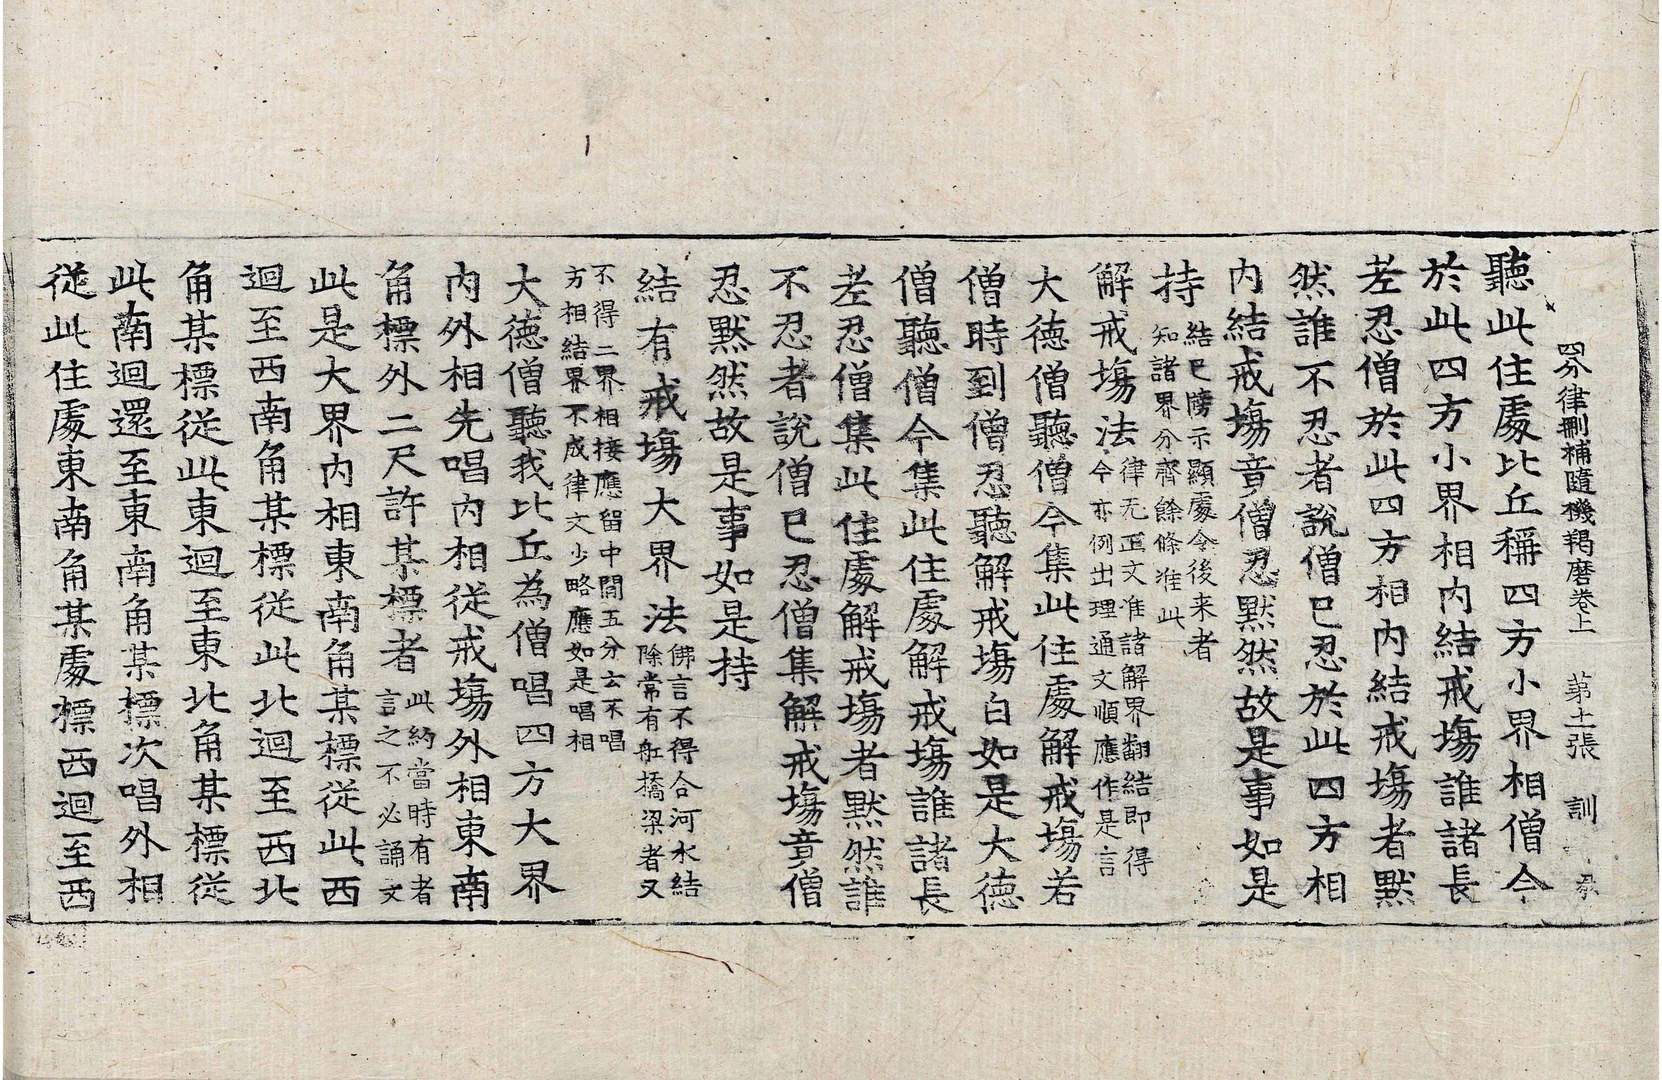 四分律刪補隨機羯磨卷上　第十一張　訓
聽此住處比丘稱四方小界相僧今
於此四方小界相內結戒塲誰諸長
老忍僧於此四方相內結戒塲者默
然誰不忍者說僧已忍於此四方相
內結戒塲竟僧忍默然故是事如是
持
結已牓示顯處令後來者
知諸界分齊餘條准此
解戒塲法
律无正文准諸解界翻結即得
今亦例出理通文順應作是言
大德僧聽僧今集此住處解戒塲若
僧時到僧忍聽解戒塲白如是大德
僧聽僧今集此住處解戒塲誰諸長
老忍僧集此住處解戒塲者默然誰
不忍者說僧已忍僧集解戒塲竟僧
忍默然故是事如是持
結有戒塲大界法
佛言不得合河水結
除常有舩橋梁者又
不得二界相接應留中間五分云不唱
方相結界不成律文少略應如是唱相
大德僧聽我比丘為僧唱四方大界
內外相先唱內相從戒塲外相東南
角標外二尺許某標者
此約當時有者
言之不必誦文
此是大界內相東南角某標從此西
迴至西南角某標從此北迴至西北
角某標從此東迴至東北角某標從
此南迴還至東南角某標次唱外相
從此住處東南角某處標西迴至西